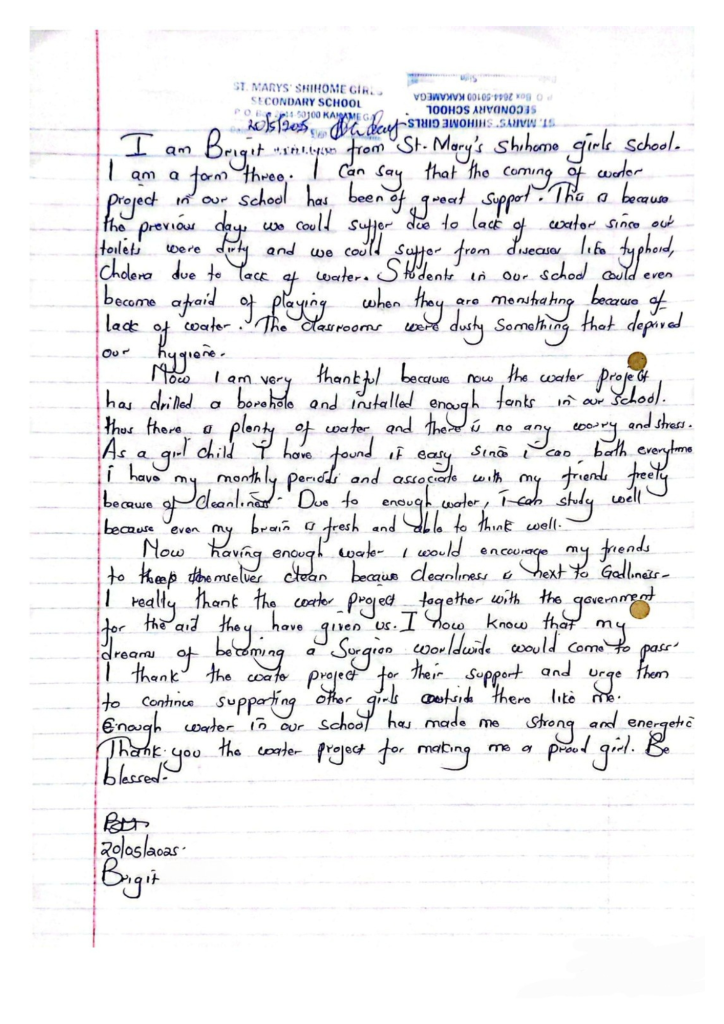 ST. MARYS' SHIHOME GIRLS
SECONDARY SCHOOL
P. O. Box 2044-50100 KAKAMEGA
20/5/2025
ST. MARYS' SHIHOME GIRLS
SECONDARY SCHOOL
P. O. Box 2044-50100 KAKAMEGA
I am Brigit from St. Mary's Shihome girls School.
I am a form three. I Can say that the coming of water
project in our school has been of great suppot. This is because
the previous days we could suffer due to lack of water since our
toilets were dirty and we could suffer from diseases like typhoid,
Cholera due to lack of water. Students in our school could even
become afraid of playing when they are menstrating because of
lack of water. The classrooms were dusty something that deprived
our hygiene.
Now I am very thankful because now the water project
has drilled a borehole and installed enough tanks in our School.
thus there is plenty of water and there is no any worry and stress.
As a girl child I have found it easy since i can bath everytime
i have my monthly periods and associate with my friends freely
because of cleanliness. Due to enough water, i can study well
because even my brain is fresh and able to think well.
Now having enough water I would encourage my friends
to keep themselves clean because cleanliness is next to Godliness.
I really thank the water project together with the government
for the aid they have given us. I now know that my
dreams of becoming a Surgion worldwide would come to pass.
I thank the water project for their support and urge them
to continue supporting other girls outside there like me.
Enough water in our school has made me strong and energetic
Thank you the water project for making me a proud girl. Be
blessed.
20/05/2025.
Brigit